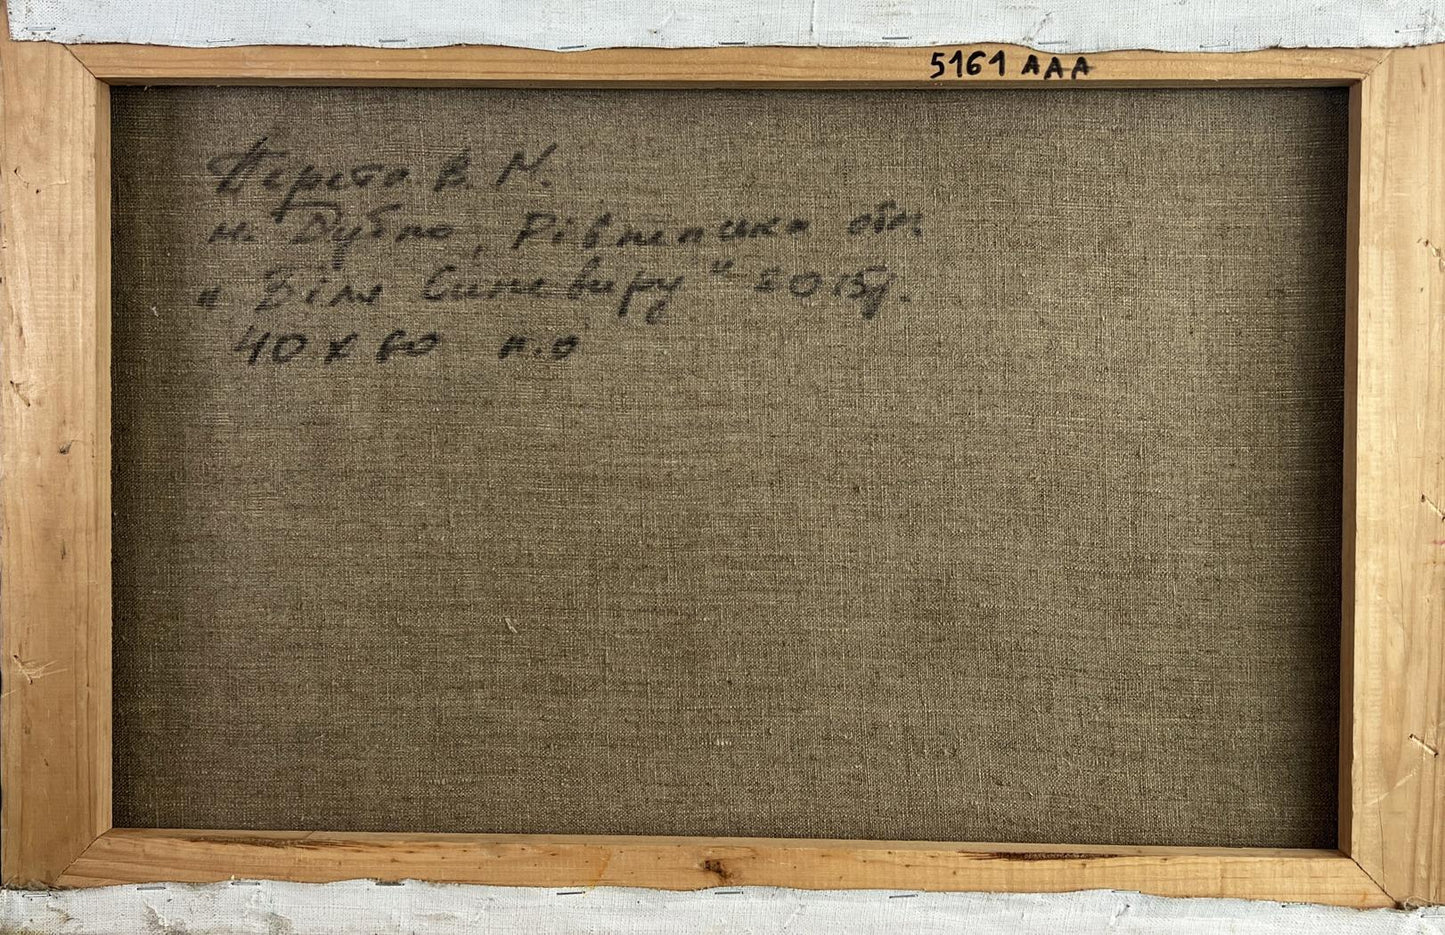 5161 AAA
Перета В. М.
м. Дубно, Рівненська обл.
"Біля Синевиру" 2015р.
40 х 60 п.о